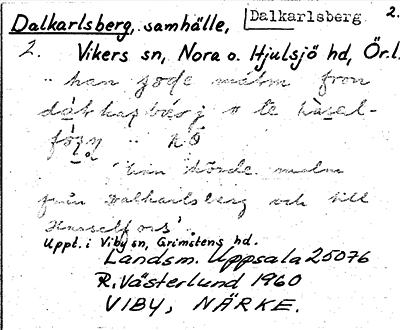 Dalkarlsberg, samhälle, Dalkarlsberg 2.
2. Vikers sn, Nora o. Hjulsjö hd, Ör.l.
han malm från
hasel-
"han körde malm
från Dalkarlsberg och till
Hasselfors'.
Uppt. i Viby sn, Grimstens hd.
Landsm. Uppsala 25076
R. Västerlund 1960
VIBY, NÄRKE.